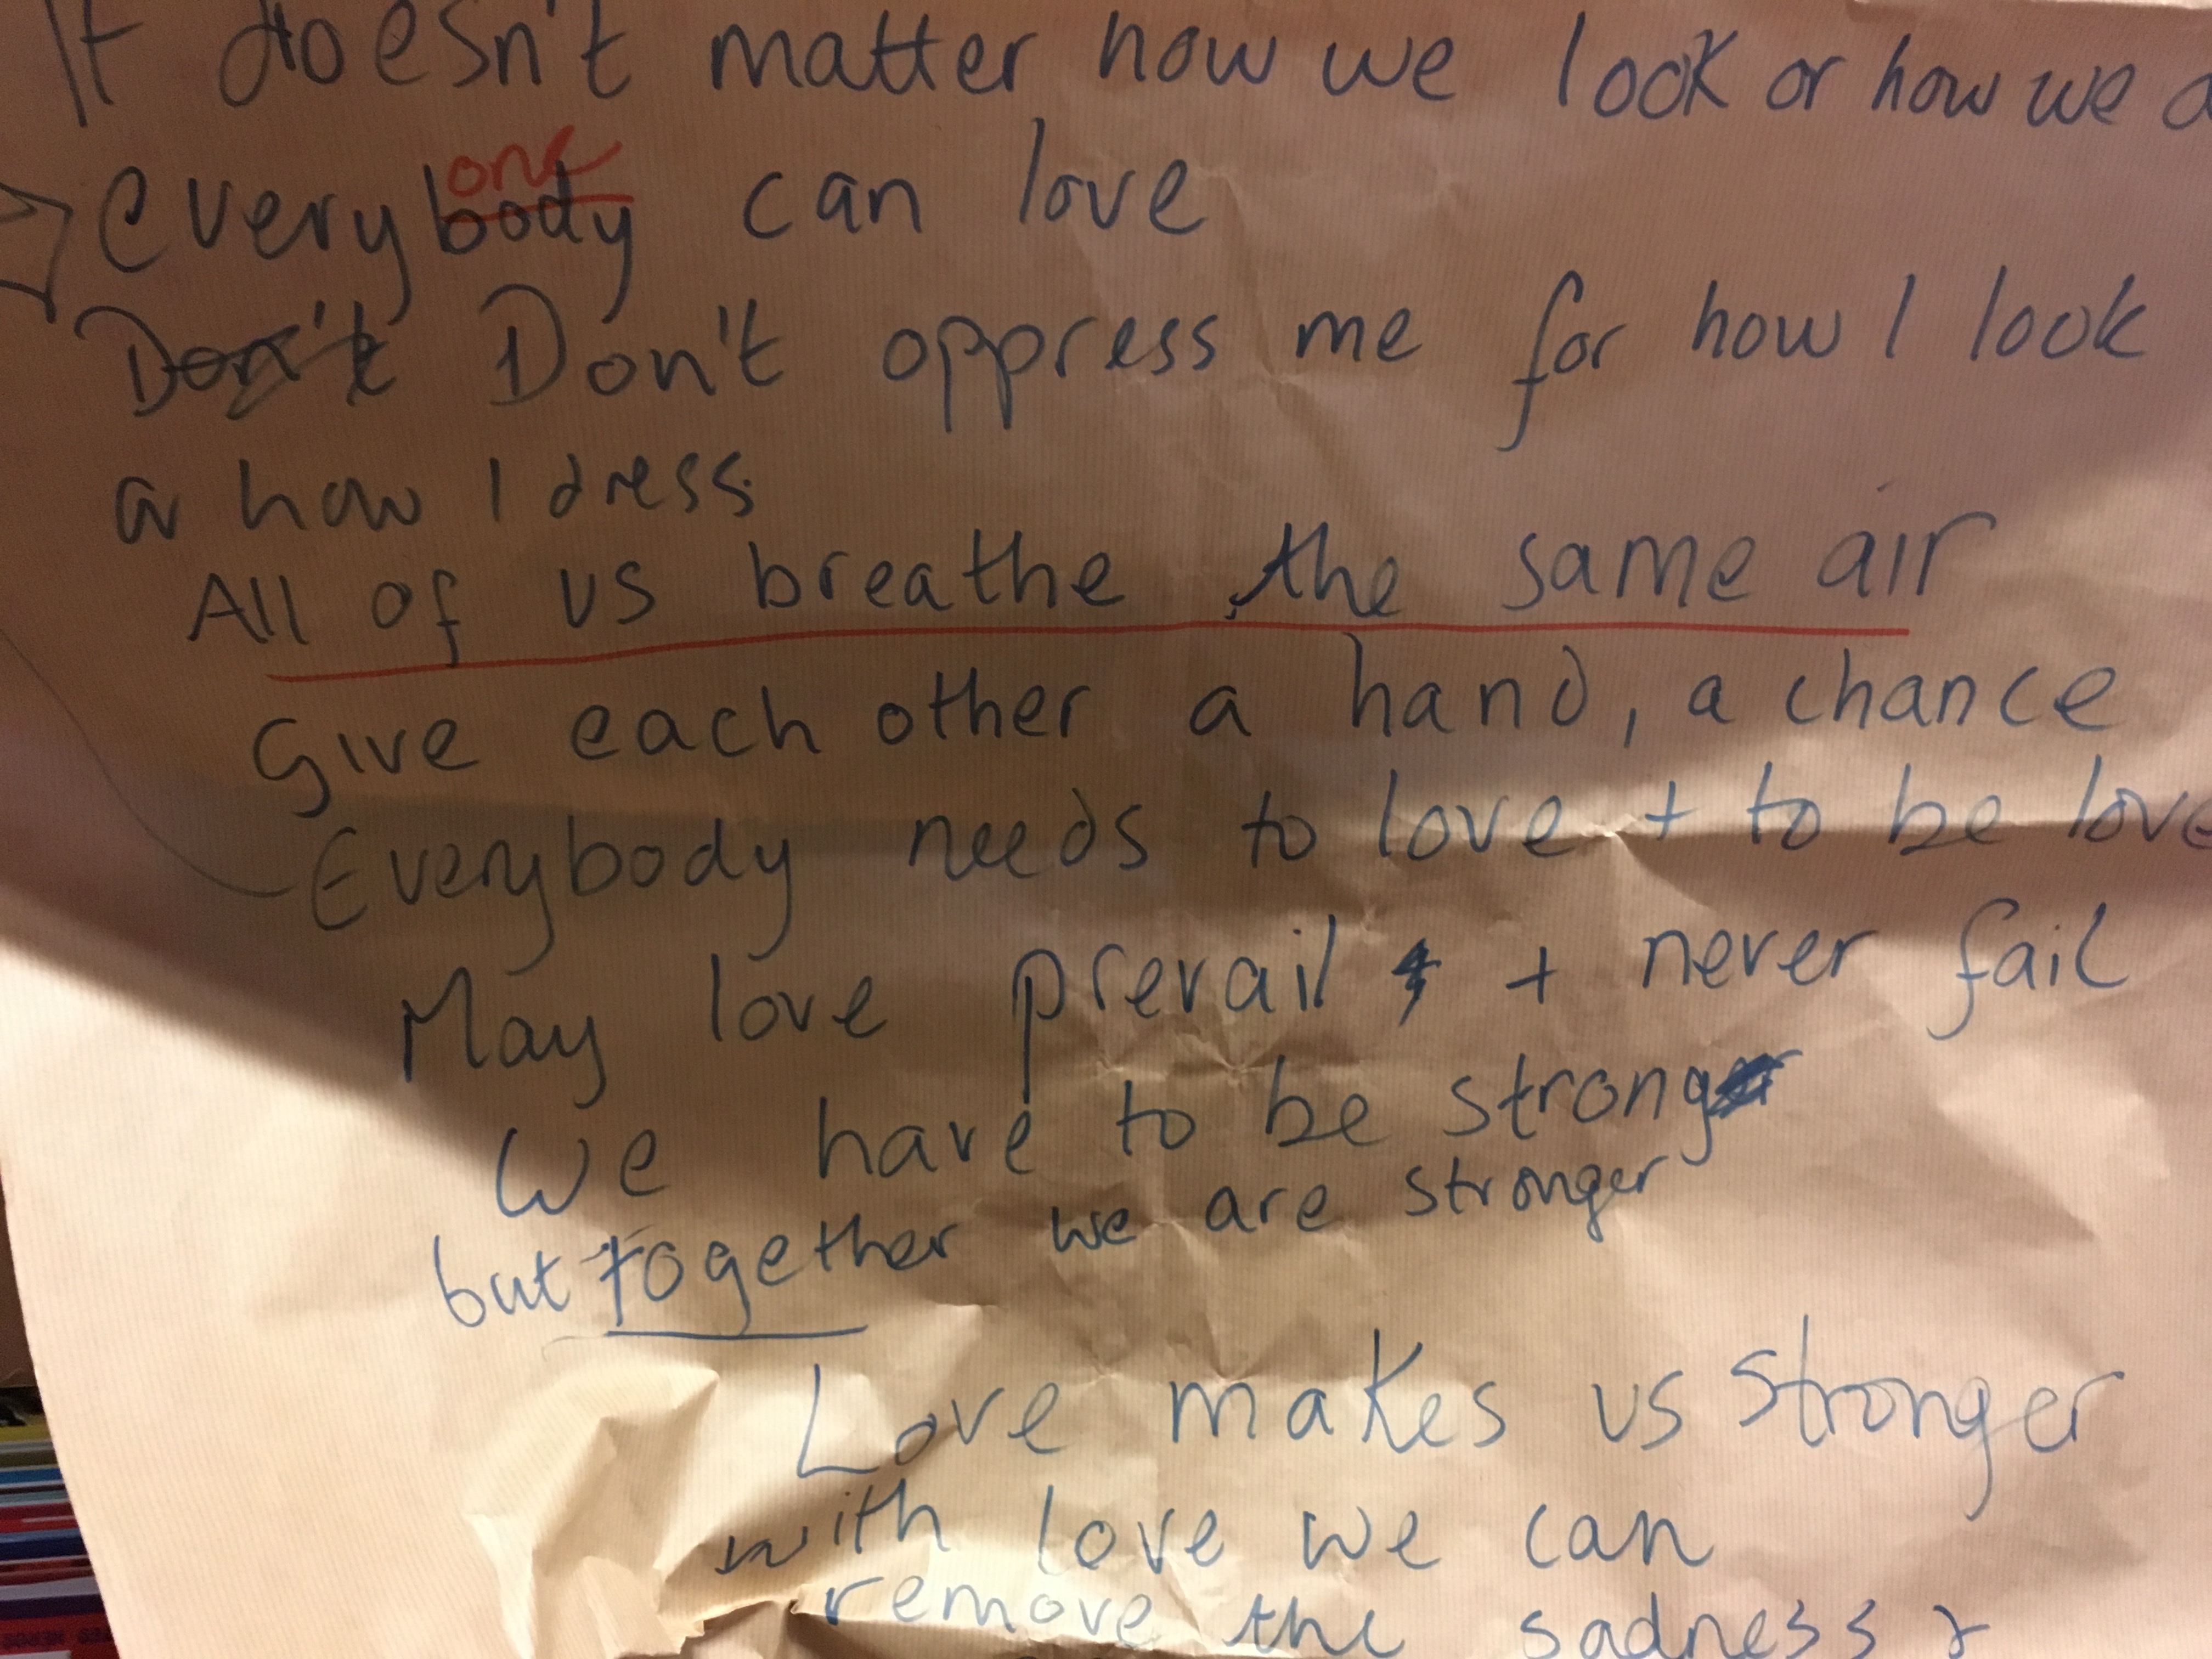 It doesn't matter how we look or how we
one
everybody can love
Don't Don't oppress me for how I look
or how I dress.
All of us breathe the same air
Give each other a hand, a chance
Everybody needs to love + to be love
May love prevail + never fail
We have to be strong
but together we are stronger
Love makes us stronger
with love we can
remove the sadness +